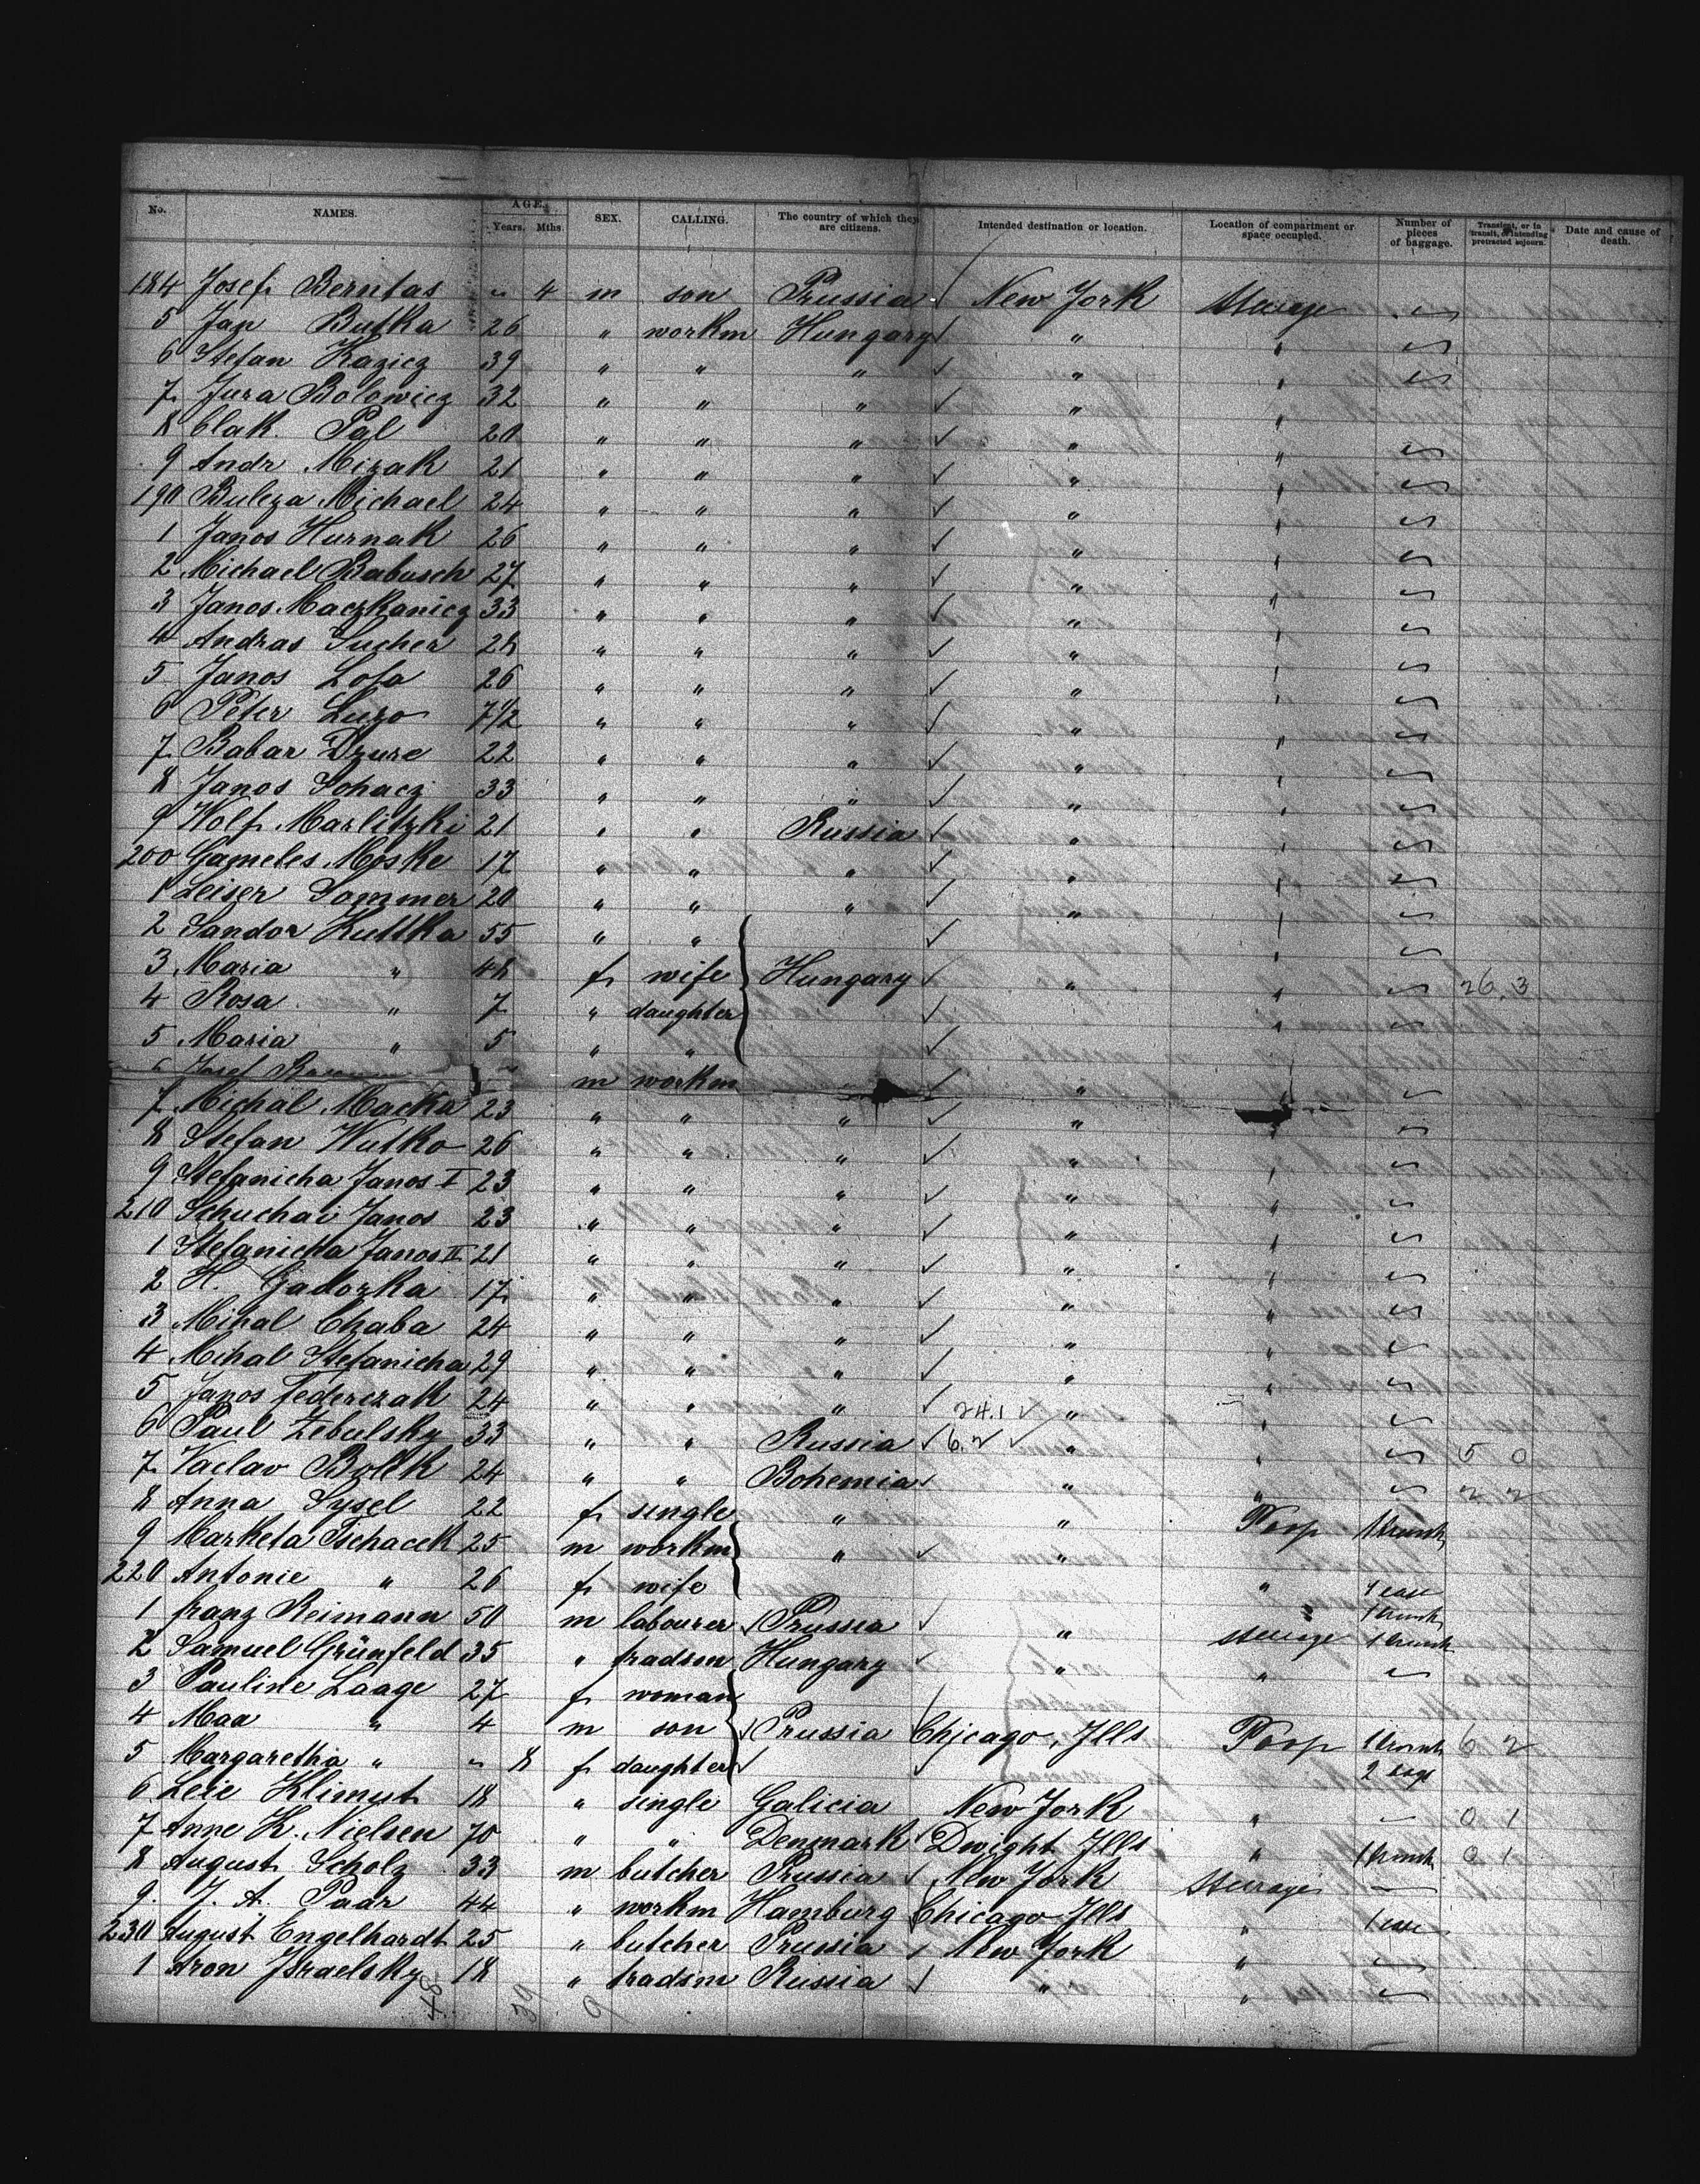 No. NAMES. AGE. Years. Mths. SEX. CALLING. The country of which they are citizens. Intended destination or location. Location of compartment or space occupied. Number of pieces of baggage. Transient, or in transit, or intending protracted sojourn. Date and cause of death.
184 Josef Berntas " 4 m son Prussia New York Steerage
5 Jan Butka 26 " workm Hungary " "
6 Stefan Kazicz 39 " " " " "
7 Jura Bolowicz 32 " " " " "
8 Clak. Pal 20 " " " " "
9 Andr Mizak 21 " " " " "
190 Buleza Michael 24 " " " " "
1 Janos Hurnak 26 " " " " "
2 Michael Babusch 27 " " " " "
3 Janos Maczkanicz 33 " " " " "
4 Andras Sucher 28 " " " " "
5 Janos Lofa 26 " " " " "
6 Peter Luzo 7 1/2 " " " " "
7 Babar Dzure 22 " " " " "
8 Janos Sohacz 33 " " " " "
9 Wolf Marlitzki 21 " " Russia " "
200 Gameles Moske 17 " " " " "
1 Leiser Sommer 20 " " " " "
2 Sandor Kuttka 55 " "
3 Maria " 48 f wife Hungary " " 26.3
4 Rosa " 7 " daughter "
5 Maria " 5 " " "
6 Josef m workm "
7 Michal Macka 23 " " " " "
8 Stefan Wutko 26 " " " " "
9 Stefanicha Janos I 23 " " " " "
210 Schuchai Janos 23 " " " " "
1 Stefanicha Janos II 21 " " " " "
2 H. Gadozka 17 " " " " "
3 Mihal Chaba 24 " " " " "
4 Mihal Stefanicha 29 " " " " "
5 Janos Federczak 24 " " " 24.1 " "
6 Paul Zebulsky 33 " " Russia 6.2 " " 5 0
7 Vaclav Bolek 24 " " Bohemia " " 2 2
8 Anna Sysel 22 f single " " Poop 1 trunk
9 Marketa Tschacek 25 m workm " "
220 Antonie " 26 f wife " 1 case 1 trunk
1 Franz Reimann 50 m labourer Prussia " steerage 1 trunk
2 Samuel Grünfeld 35 " tradsm Hungary " "
3 Pauline Laage 27 f woman
4 Max " 4 m son Prussia Chicago, Ills Poop 1 trunk 6 2
5 Margaretha " " 8 f daughter 2 bags
6 Leie Klimut 18 " single Galicia New York " 0 1
7 Anne K. Nielsen 70 " " Denmark Dwight Ills " 1 trunk 0 1
8 August Scholz 33 m butcher Prussia New York Steerage
9. J. A. Paar 44 " workm Hamburg Chicago Ills " 1 case
230 August Engelhardt 25 " butcher Prussia New York "
1 Aron Israelsky 18 " tradsm Russia " "
48